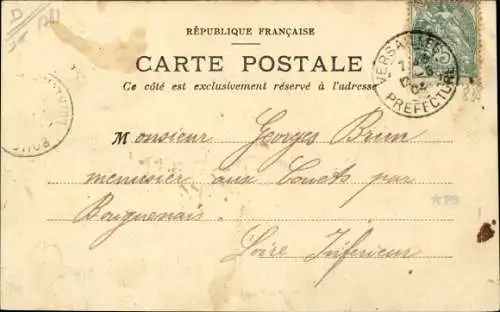 RÉPUBLIQUE FRANÇAISE
CARTE POSTALE
Ce côté est exclusivement réservé à l'adresse
VERSAILLES
PREFECTURE
Monsieur Georges Brun
menuisier aux Couets par
Bouguenais
Loire Inferieure